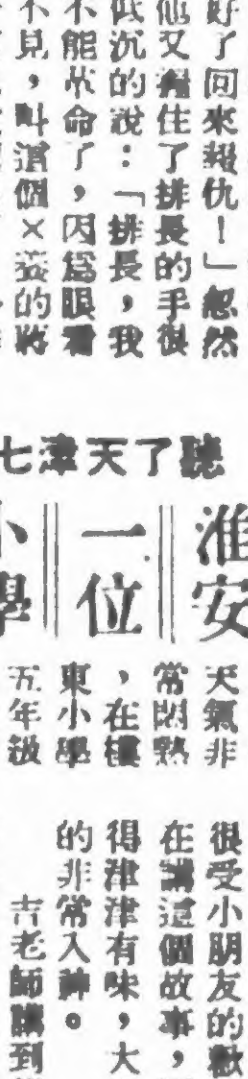 好了回來報仇！」忽然
他又握住了排長的手很
低沉的說：「排長，我
不能革命了，因爲眼看
不見，叫這個×蔣的將
聽了天津七
淮安
一位
小學
天氣非
常悶熱
，在樓
東小學
五年級
很受小朋友的歡
在講這個故事，
得津津有味，大
的非常入神。
吉老師講到